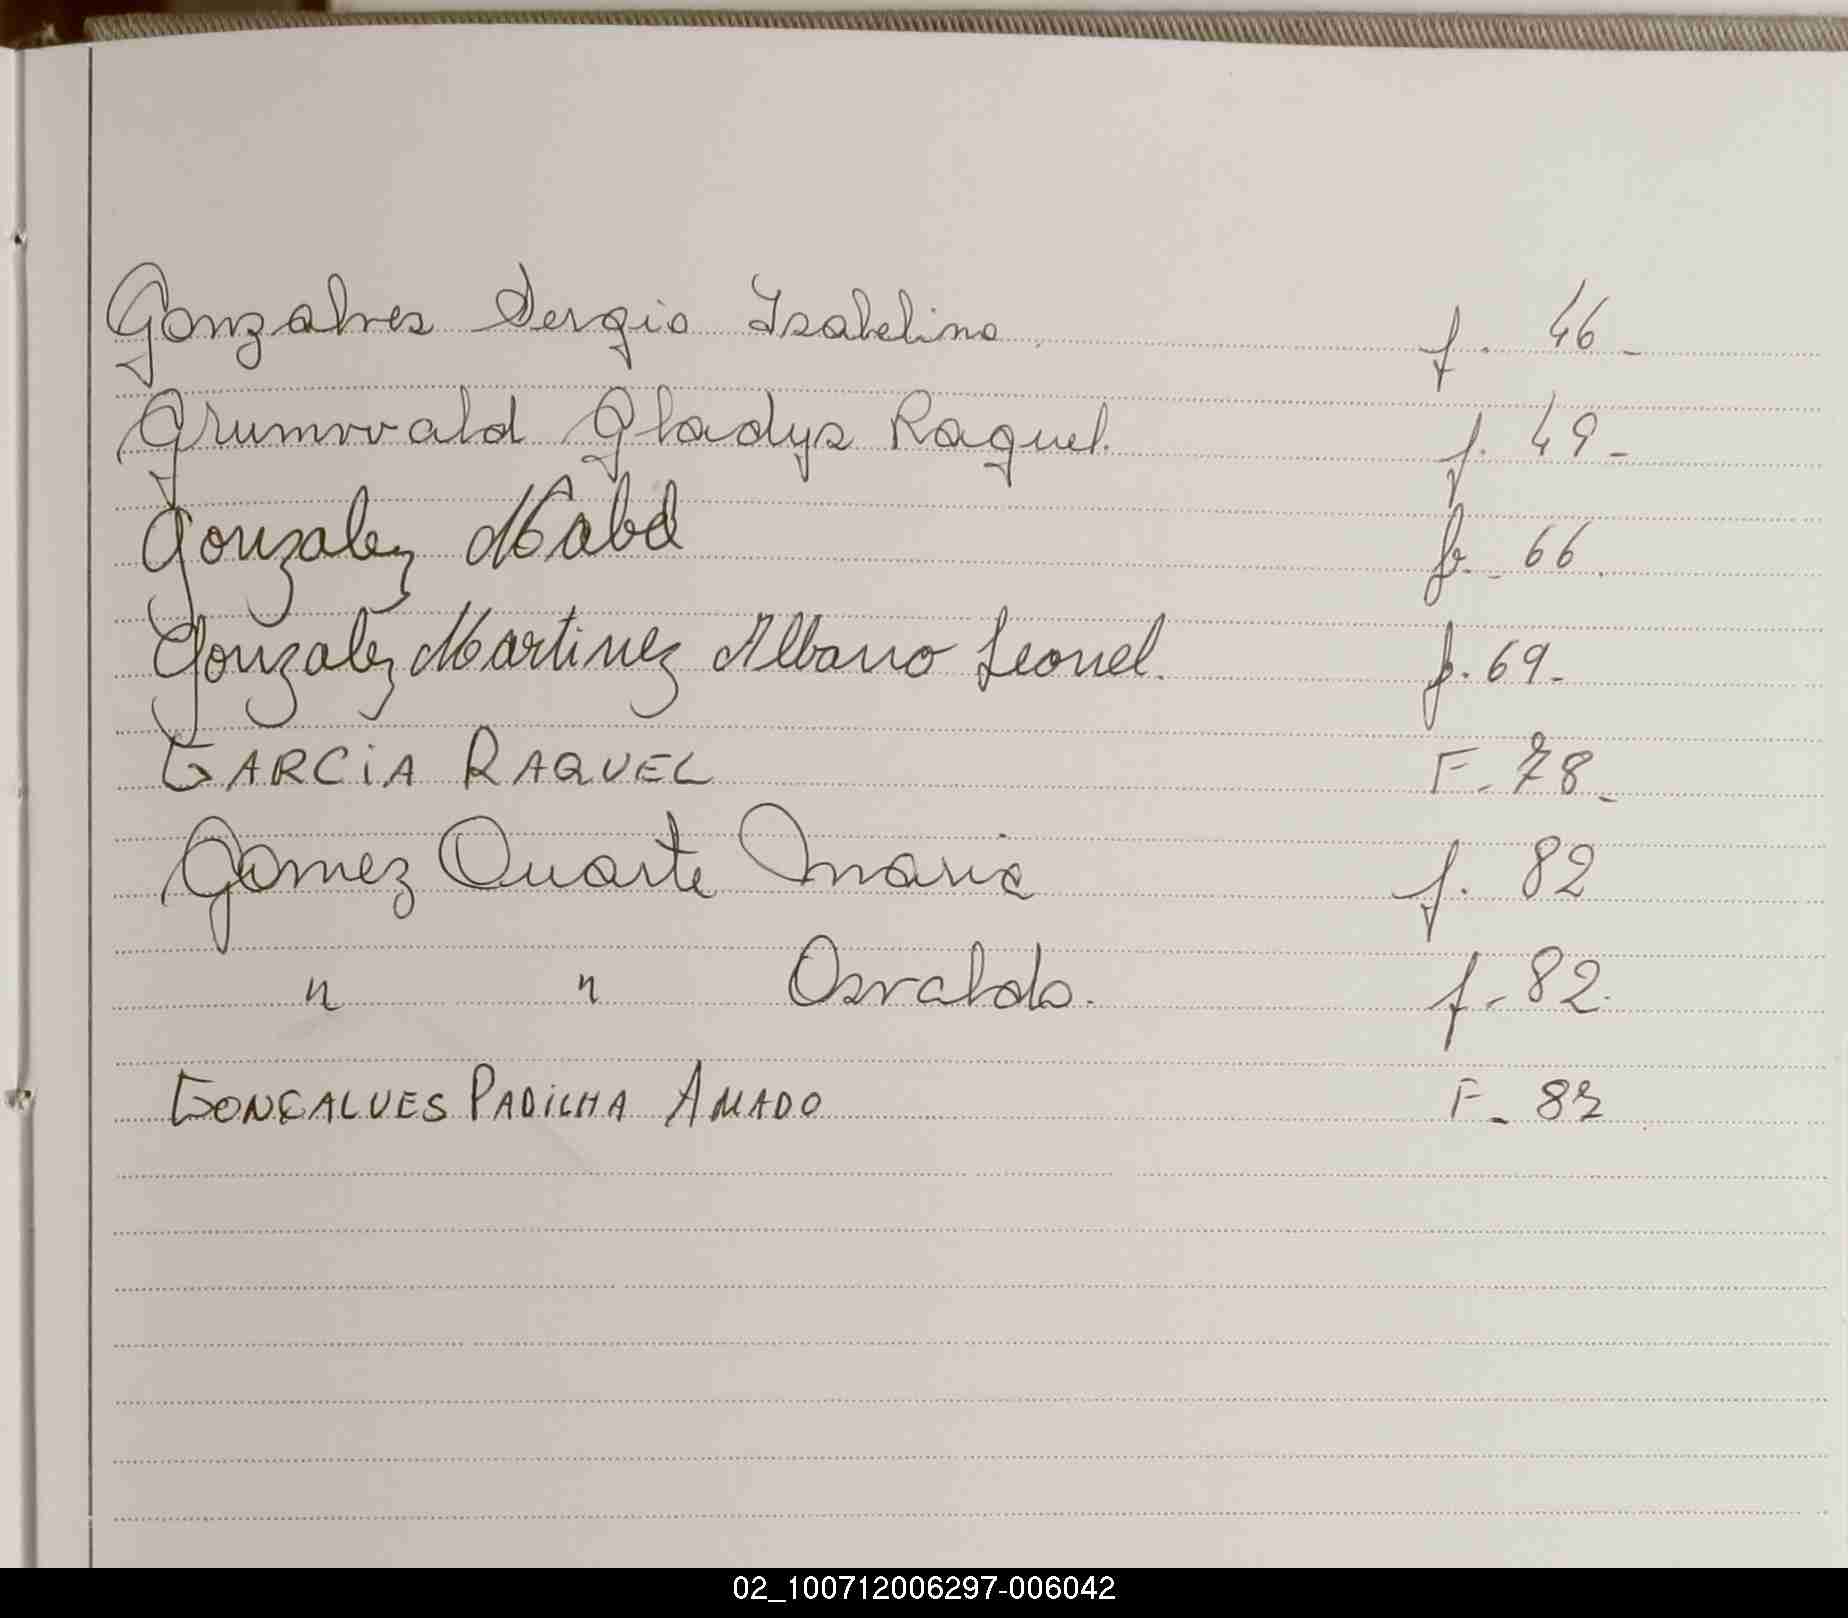 Gonzalves Sergio Isabelino. f. 46-
Grumwald Gladys Raquel. f. 49-
Gonzalez Mabel f. - 66.
Gonzalez Martinez Albano Leonel. f. 69-
GARCIA RAQUEL F- 78-
Gomez Duarte Maria f. 82
" " Osvaldo. f- 82.
GONÇALVES PADILHA AMADO F- 87
02_100712006297-006042